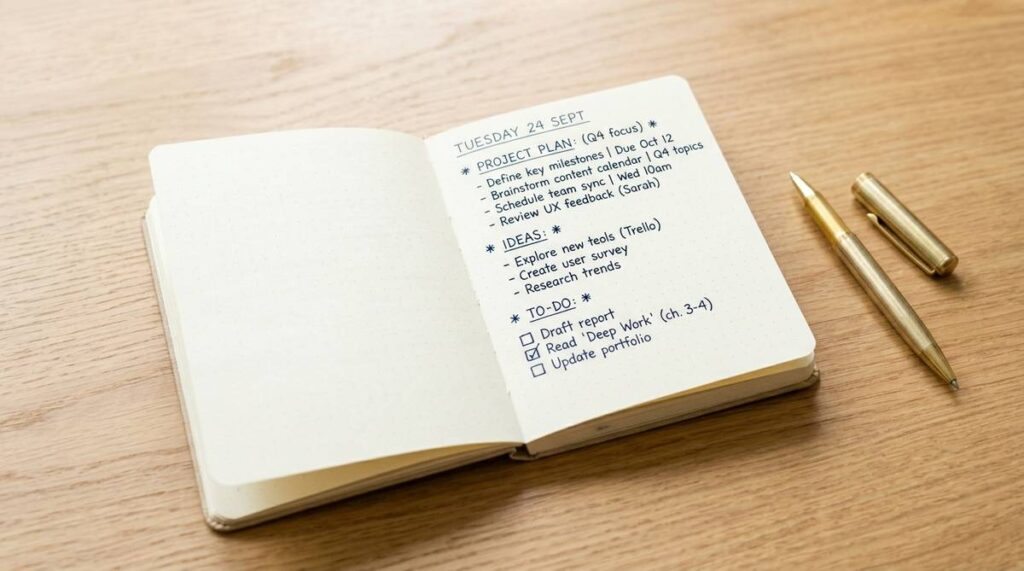 TUESDAY 24 SEPT
* PROJECT PLAN: (Q4 focus) *
- Define key milestones | Due Oct 12
- Brainstorm content calendar | Q4 topics
- Schedule team sync | Wed 10am
- Review UX feedback (Sarah)
* IDEAS: *
- Explore new tools (Trello)
- Create user survey
- Research trends
* TO-DO: *
☐ Draft report
☑ Read 'Deep Work' (ch. 3-4)
☐ Update portfolio